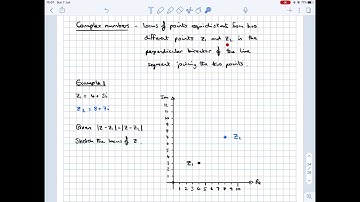 Complex numbers - locus of points equidistant from two
different points Z₁ and Z₂ is the
perpendicular bisector of the line
segment joining the two points.
Example 1
Z₁ = 4 + 3i
Z₂ = 8 + 7i
Given |Z-Z₁|=|Z-Z₂|
Sketch the locus of Z.
Im
9
8
7
6
5
4
3
2
1
Z₂
Z₁
1 2 3 4 5 6 7 8 9 10
Re